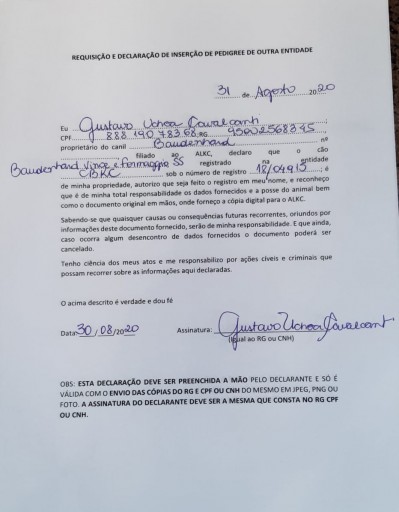 REQUISIÇÃO E DECLARAÇÃO DE INSERÇÃO DE PEDIGREE DE OUTRA ENTIDADE
31 de Agosto 2020
Eu Gustavo Uchoa Cavalcanti
CPF 888.190.783.68 RG 95002568345
proprietário do canil Baudenhard nº
filiado ao ALKC, declaro que o cão
Baudenhard Vince e Formaggio SS registrado na entidade
CBKC sob o número de registro 18/04915; é
de minha propriedade, autorizo que seja feito o registro em meu nome, e reconheço
que é de minha total responsabilidade os dados fornecidos e a posse do animal bem
como o documento original em mãos, onde forneço a cópia digital para o ALKC.
Sabendo-se que quaisquer causas ou consequências futuras recorrentes, oriundos por
informações deste documento fornecido, serão de minha responsabilidade. E que ainda,
caso ocorra algum desencontro de dados fornecidos o documento poderá ser
cancelado.
Tenho ciência dos meus atos e me responsabilizo por ações cíveis e criminais que
possam recorrer sobre as informações aqui declaradas.
O acima descrito é verdade e dou fé
Data: 30/08/2020 Assinatura: Gustavo Uchoa Cavalcant
(Igual ao RG ou CNH)
OBS: ESTA DECLARAÇÃO DEVE SER PREENCHIDA A MÃO PELO DECLARANTE E SÓ É
VÁLIDA COM O ENVIO DAS CÓPIAS DO RG E CPF OU CNH DO MESMO EM JPEG, PNG OU
FOTO. A ASSINATURA DO DECLARANTE DEVE SER A MESMA QUE CONSTA NO RG CPF
OU CNH.